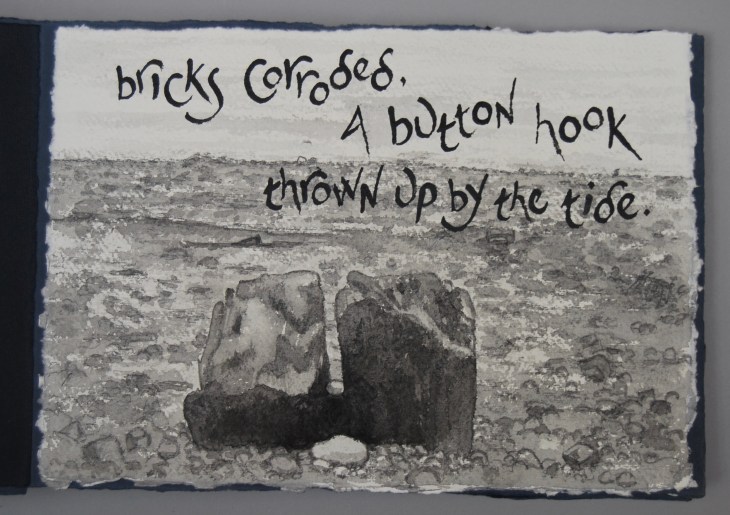 bricks corroded.
A button hook
thrown up by the tide.